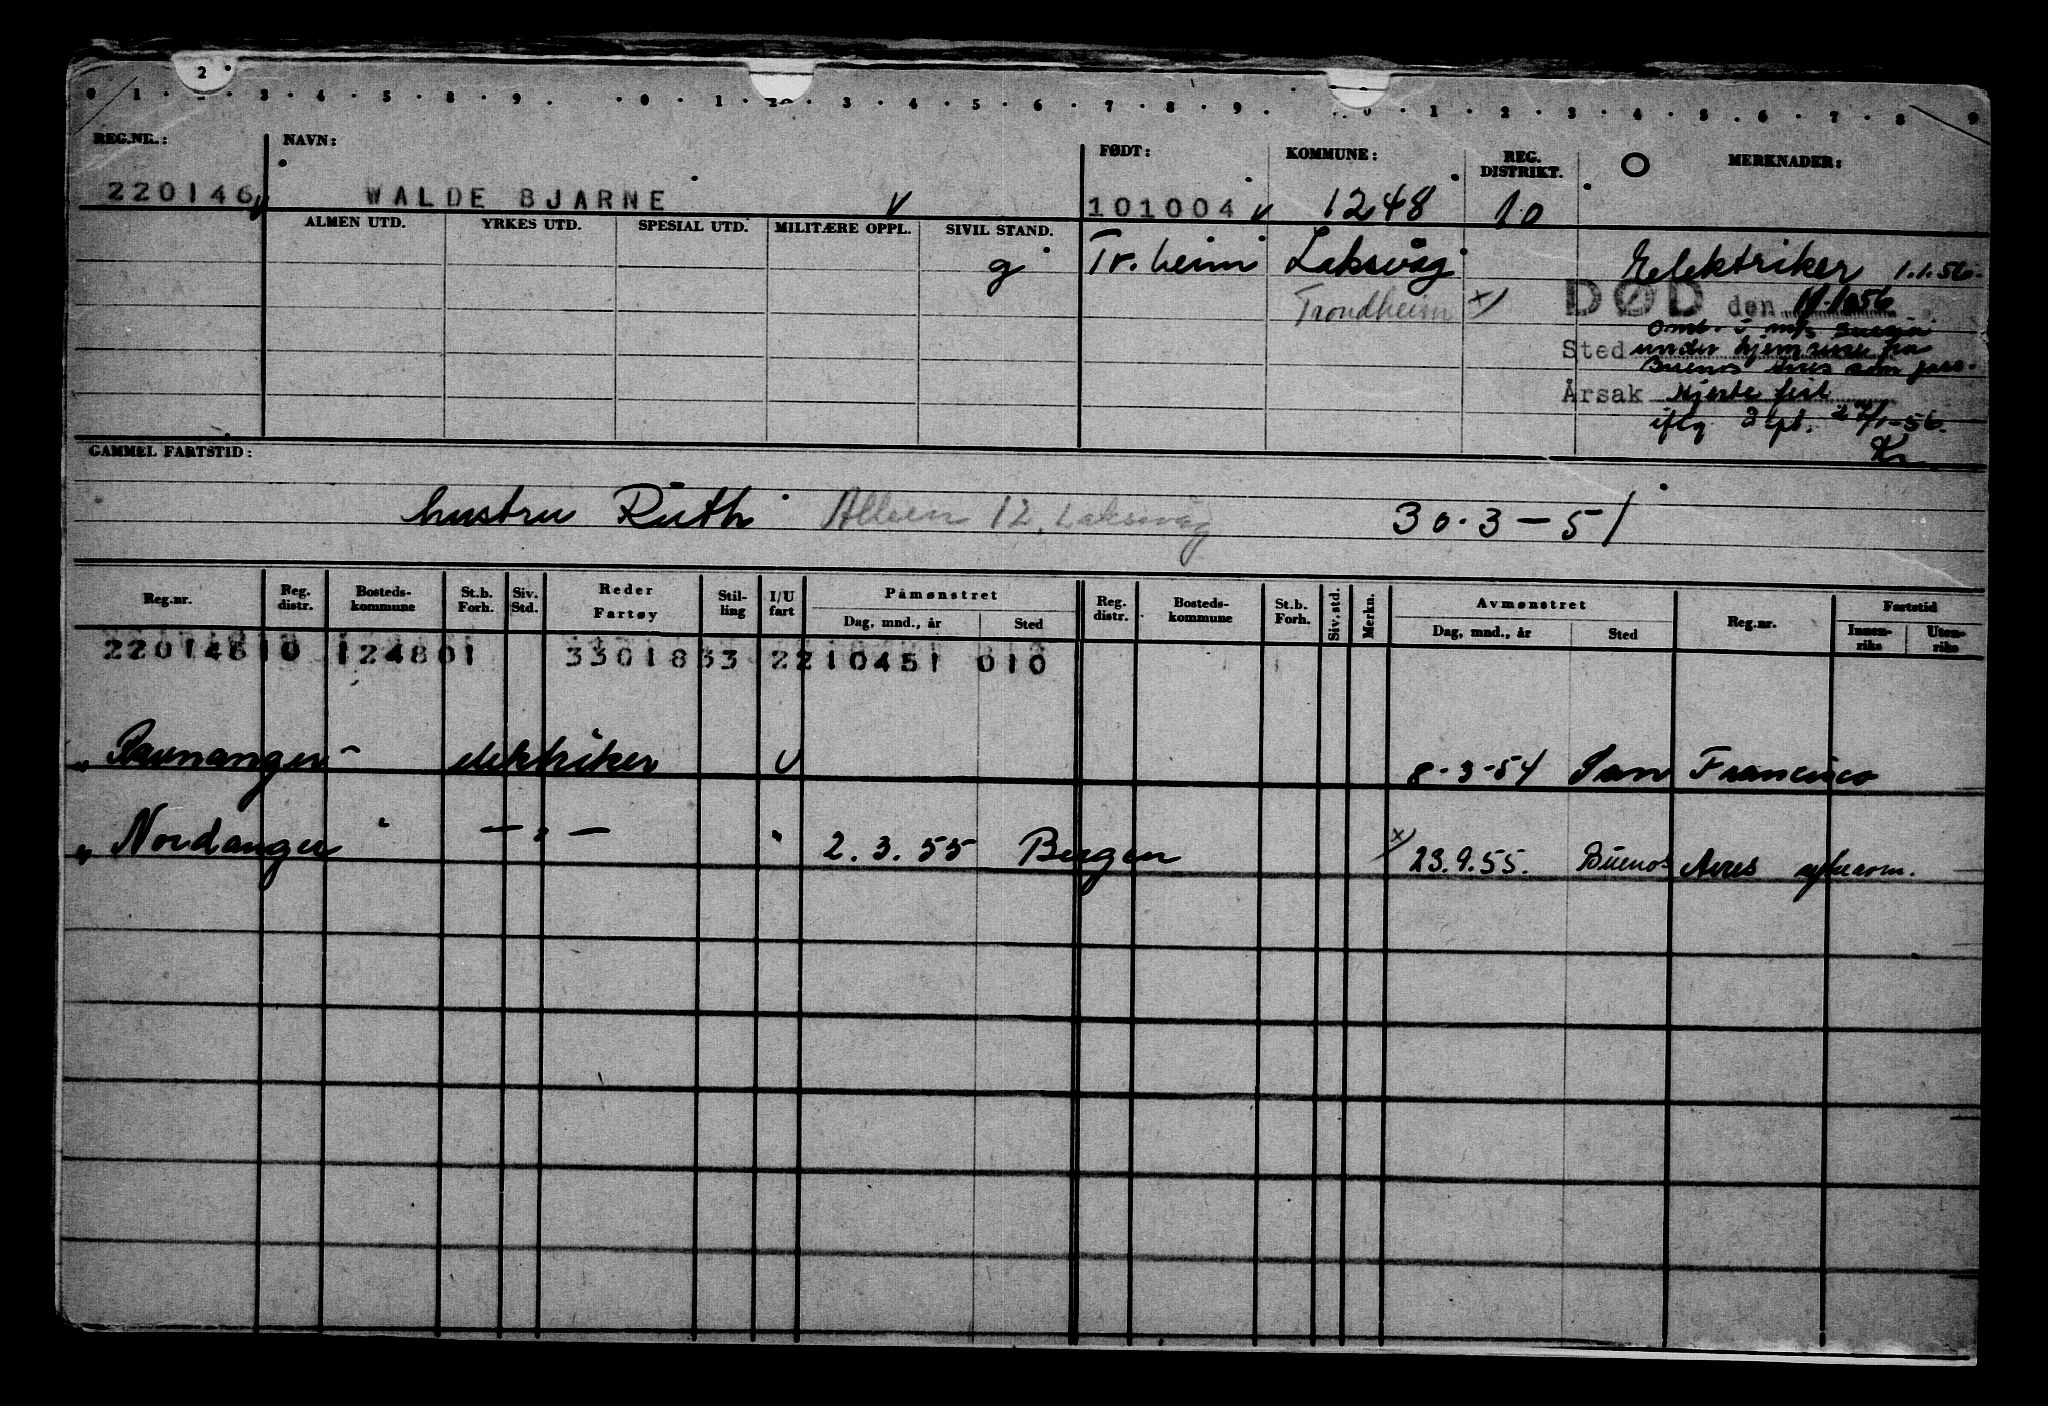 2
0 1 2 3 4 5 8 9 0 1 20 3 4 5 6 7 8 9 0 1 2 3 4 5 6 7 8 9
REG.NR.: NAVN: FØDT: KOMMUNE: REG. DISTRIKT. MERKNADER:
220146 WALDE BJARNE 101004 1248 10
ALMEN UTD. YRKES UTD. SPESIAL UTD. MILITÆRE OPPL. SIVIL STAND.
g Tr.heim Laksvåg Elektriker 1.1.56.
Trondheim x) DØD den
Omb. i m/s
Sted under hjemreise fra
Buenos Aires som pass.
Årsak Hjertefeil
iflg Rpt. -56.
Kr
GAMMEL FARTSTID:
hustru Ruth Alleen 12, Laksevåg 30.3-51
Reg.nr. Reg. distr. Bosteds-kommune St.b. Forh. Siv. Std. Reder Fartøy Stil-ling I/U fart Påmønstret Dag, mnd., år Sted Reg. distr. Bosteds-kommune St.b. Forh. Siv. std. Merkn. Avmønstret Dag, mnd., år Sted Reg.nr. Fartstid Innen-riks Uten-riks
220146 10 124801 33018 33 2 210451 010
" Ravnanger - elektriker U 8-3-54 San Francisco
" Nordanger " — " — " 2.3.55 Bergen x) 23.9.55. Buenos Aires sykdom.